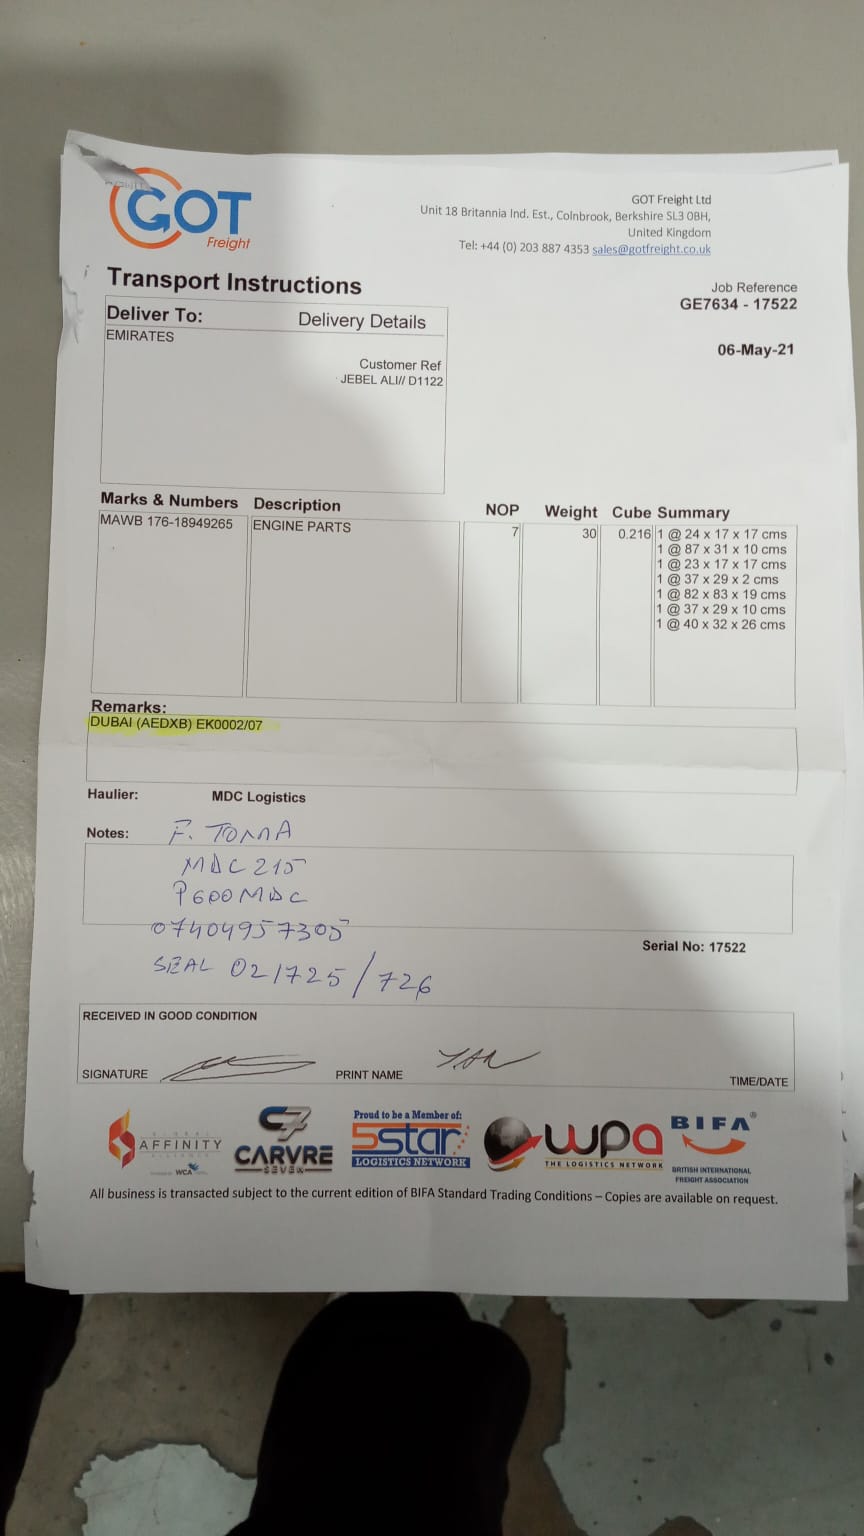 GOT
Freight
GOT Freight Ltd
Unit 18 Britannia Ind. Est., Colnbrook, Berkshire SL3 0BH,
United Kingdom
Tel: +44 (0) 203 887 4353 sales@gotfreight.co.uk
Transport Instructions
Job Reference
GE7634 - 17522
06-May-21
Deliver To: Delivery Details
EMIRATES
Customer Ref
JEBEL ALI// D1122
Marks & Numbers Description NOP Weight Cube Summary
MAWB 176-18949265 ENGINE PARTS 7 30 0.216 1 @ 24 x 17 x 17 cms
1 @ 87 x 31 x 10 cms
1 @ 23 x 17 x 17 cms
1 @ 37 x 29 x 2 cms
1 @ 82 x 83 x 19 cms
1 @ 37 x 29 x 10 cms
1 @ 40 x 32 x 26 cms
Remarks:
DUBAI (AEDXB) EK0002/07
Haulier: MDC Logistics
Notes: F. TOMA
MDC 215
P600MDC
07404957305
SEAL 021725/726
Serial No: 17522
RECEIVED IN GOOD CONDITION
SIGNATURE PRINT NAME TIME/DATE
AFFINITY
WCA
C7
CARVRE
SEVEN
Proud to be a Member of:
5star
LOGISTICS NETWORK
wpa
THE LOGISTICS NETWORK
BIFA®
BRITISH INTERNATIONAL
FREIGHT ASSOCIATION
All business is transacted subject to the current edition of BIFA Standard Trading Conditions – Copies are available on request.